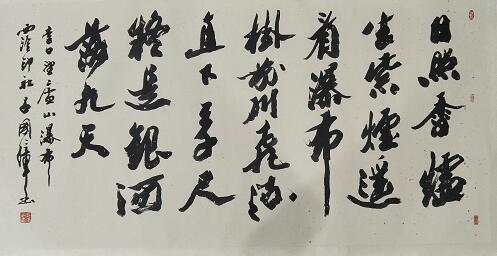 日照香爐
生紫煙遥
看瀑布
掛前川飛流
直下三千尺
疑是銀河
落九天
李白望廬山瀑布
西泠印社國書